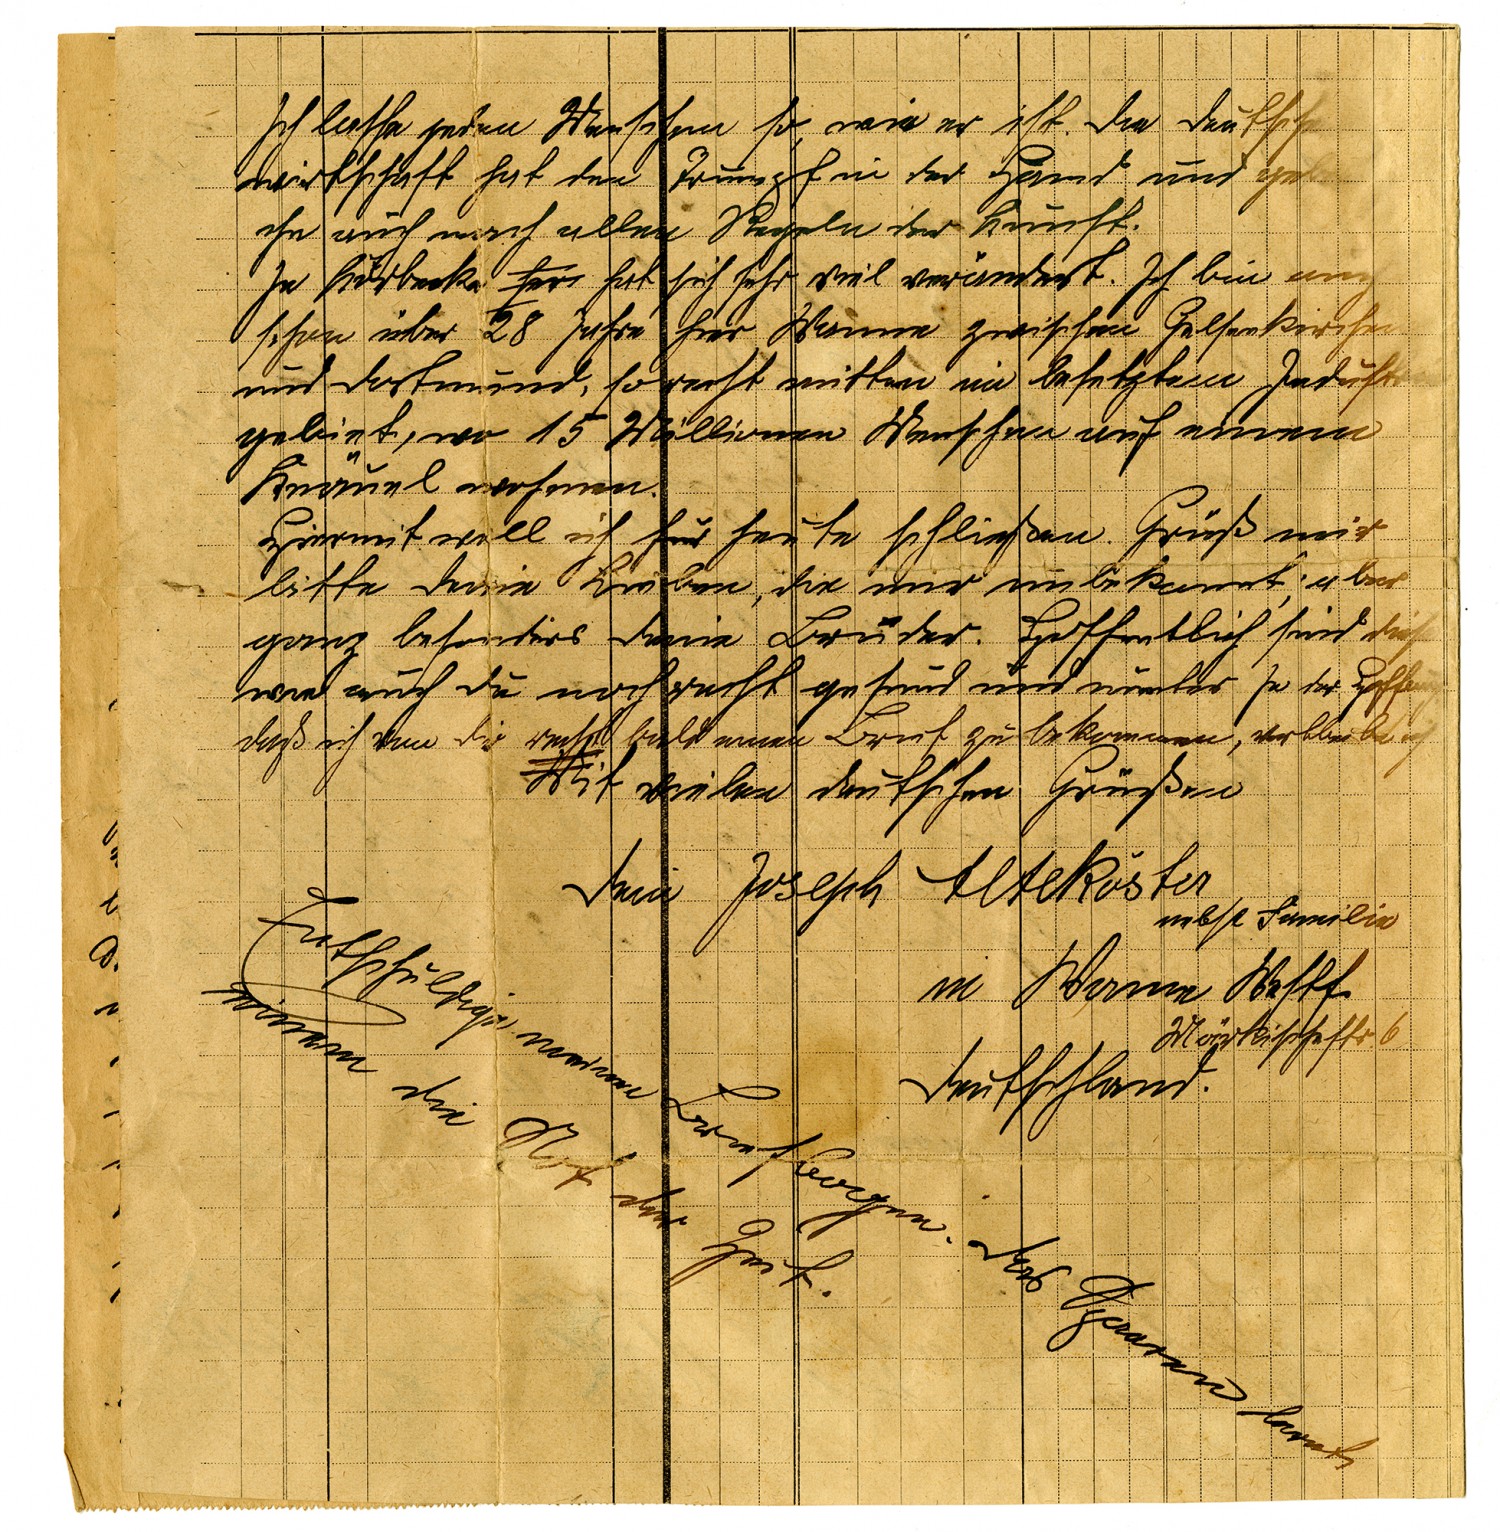 Ich lasse jeden Menschen so, wie er ist. Die deutsche
wirtschaft hat den Trumpf in der Hand und
ihn auch nach allen Regeln der Kunst.
In Körbecke hat sich sehr viel verändert. Ich bin
schon über 28 Jahre hier Wanne zwischen Gelsenkirchen
und Dortmund, so recht mitten im besetztem Industrie
gebiet, wo 15 Millionen Menschen auf einem
Knäuel wohnen.
Hiermit will ich für heute schließen. Grüß mir
bitte deine Lieben, die mir unbekannt, aber
ganz besonders deine Brüder. Hoffentlich sind diese
wie auch du noch recht gesund und munter In der Hoffnung
daß ich von dir recht bald einen Brief zu bekommen, verbleibe ich
Mit vielen deutschen Grüßen
dein Joseph Alteköster
nebst Familie
in Wanne Westf.
Märkischestr. 6
Deutschland.
Entschuldige meinen Briefbogen. Das Sparen lernt
einem die Not der Zeit.